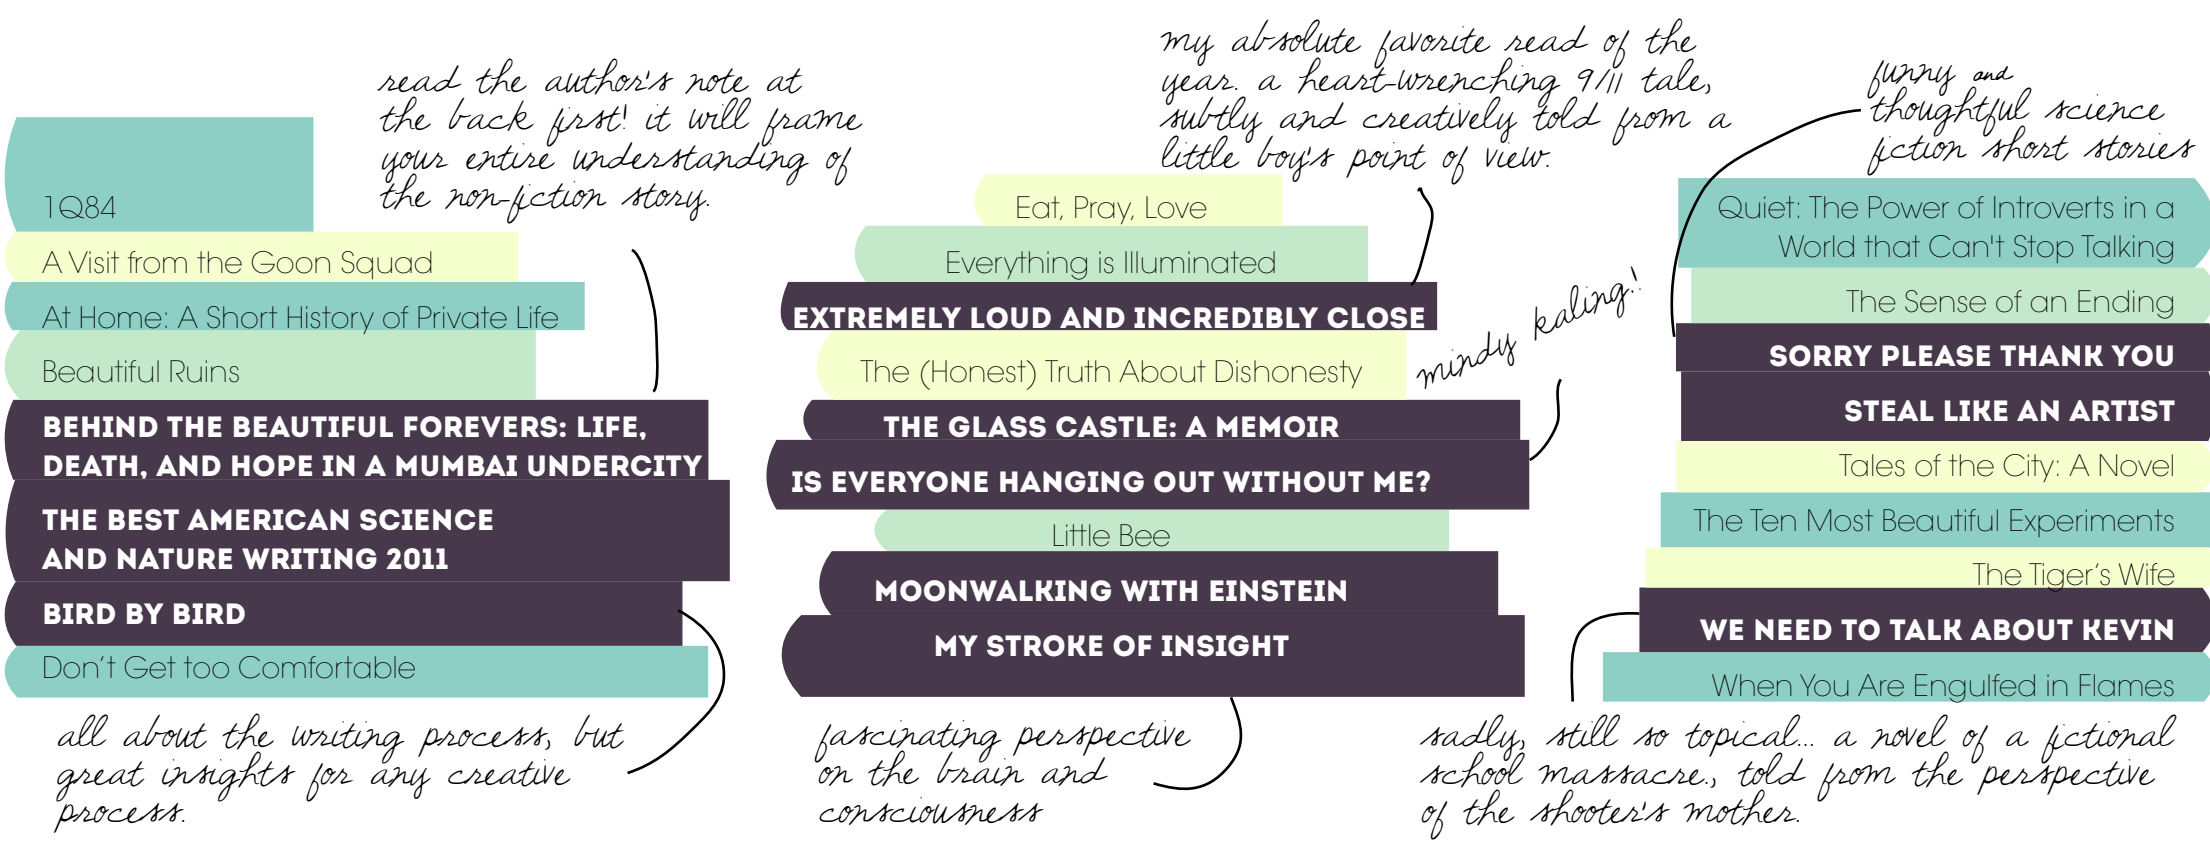 read the author's note at
the back first! it will frame
your entire understanding of
the non-fiction story.
1Q84
A Visit from the Goon Squad
At Home: A Short History of Private Life
Beautiful Ruins
BEHIND THE BEAUTIFUL FOREVERS: LIFE,
DEATH, AND HOPE IN A MUMBAI UNDERCITY
THE BEST AMERICAN SCIENCE
AND NATURE WRITING 2011
BIRD BY BIRD
Don't Get too Comfortable
all about the writing process, but
great insights for any creative
process.
my absolute favorite read of the
year. a heart-wrenching 9/11 tale,
subtly and creatively told from a
little boy's point of view.
Eat, Pray, Love
Everything is Illuminated
EXTREMELY LOUD AND INCREDIBLY CLOSE
The (Honest) Truth About Dishonesty
mindy kaling!
THE GLASS CASTLE: A MEMOIR
IS EVERYONE HANGING OUT WITHOUT ME?
Little Bee
MOONWALKING WITH EINSTEIN
MY STROKE OF INSIGHT
fascinating perspective
on the brain and
consciousness
funny and
thoughtful science
fiction short stories
Quiet: The Power of Introverts in a
World that Can't Stop Talking
The Sense of an Ending
SORRY PLEASE THANK YOU
STEAL LIKE AN ARTIST
Tales of the City: A Novel
The Ten Most Beautiful Experiments
The Tiger's Wife
WE NEED TO TALK ABOUT KEVIN
When You Are Engulfed in Flames
sadly, still so topical... a novel of a fictional
school massacre., told from the perspective
of the shooter's mother.